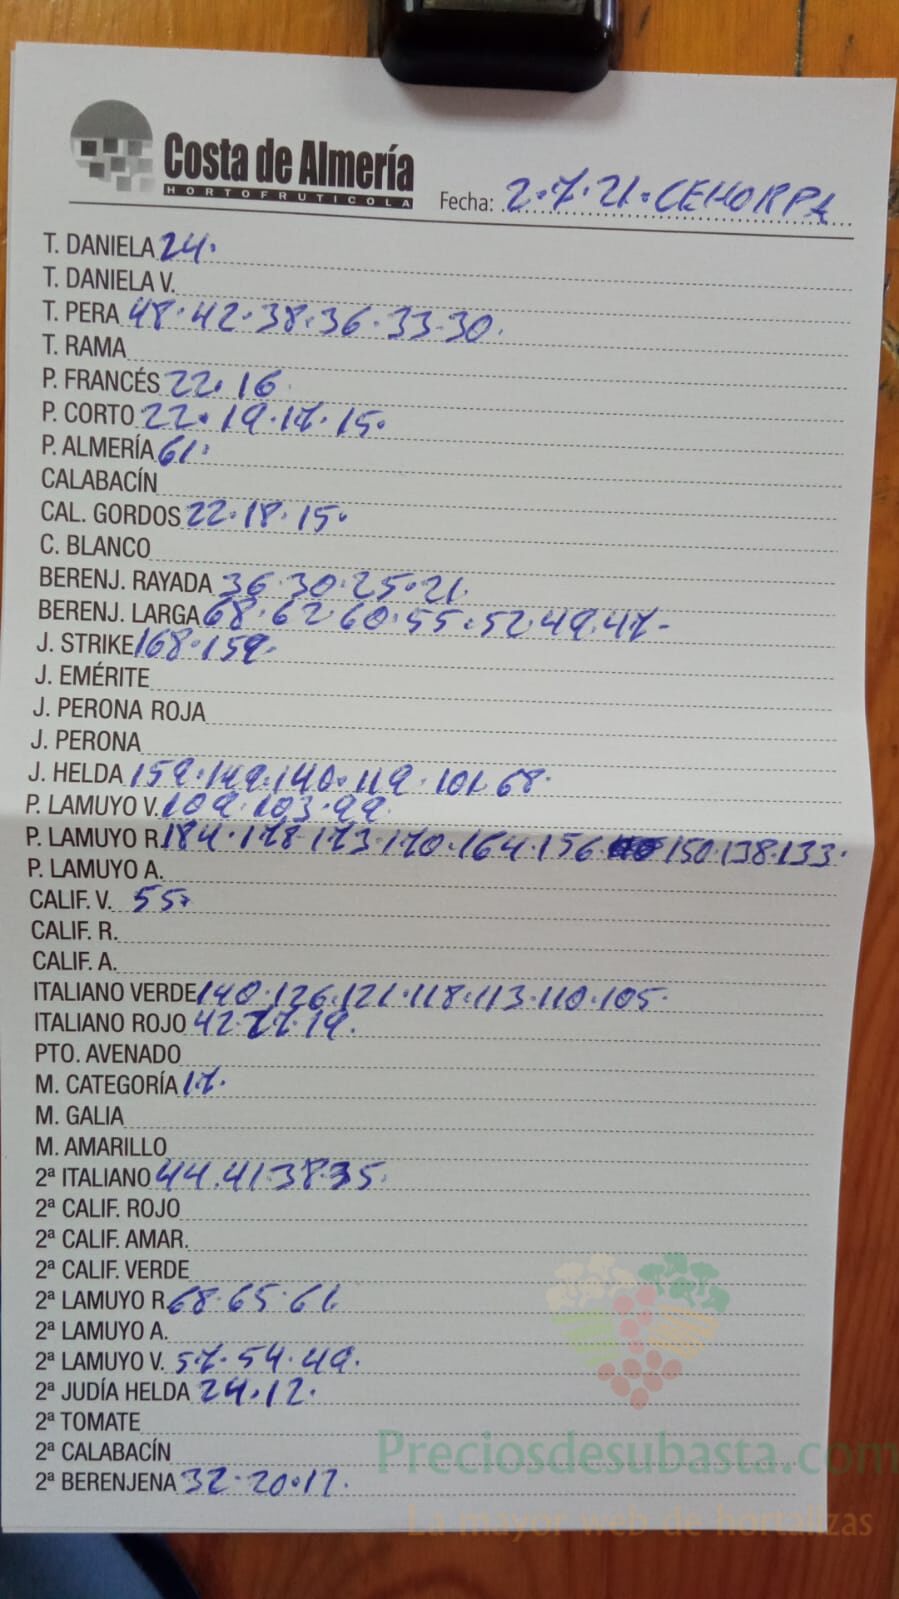 Costa de Almería
HORTOFRUTICOLA
Fecha: 2·7·21·CEHORPA
T. DANIELA 24.
T. DANIELA V.
T. PERA 48·42·38·36·33·30.
T. RAMA
P. FRANCÉS 22·16
P. CORTO 22·19·17·15.
P. ALMERÍA 61.
CALABACÍN
CAL. GORDOS 22·18·15.
C. BLANCO
BERENJ. RAYADA 36·30·25·21.
BERENJ. LARGA 68·62·60·55·52·49·47-
J. STRIKE 168·159.
J. EMÉRITE
J. PERONA ROJA
J. PERONA
J. HELDA 159·149·140·119·101·68.
P. LAMUYO V. 109·103·99.
P. LAMUYO R. 184·178·173·170·164·156 150·138·133.
P. LAMUYO A.
CALIF. V. 55.
CALIF. R.
CALIF. A.
ITALIANO VERDE 140·126·121·118·113·110·105.
ITALIANO ROJO 42· ·19.
PTO. AVENADO
M. CATEGORÍA 17.
M. GALIA
M. AMARILLO
2ª ITALIANO 44·41·38·35.
2ª CALIF. ROJO
2ª CALIF. AMAR.
2ª CALIF. VERDE
2ª LAMUYO R. 68·65·61.
2ª LAMUYO A.
2ª LAMUYO V. 57·54·49.
2ª JUDÍA HELDA 24·12.
2ª TOMATE
2ª CALABACÍN
2ª BERENJENA 32·20·17.
Preciosdesubasta.com
La mayor web de hortalizas